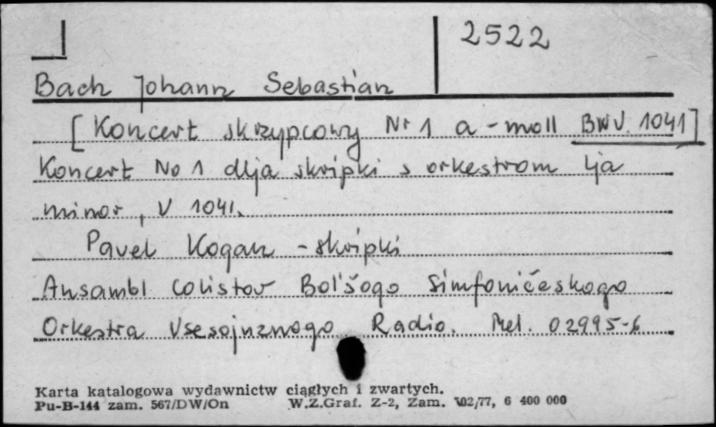 2522
Bach Johann Sebastian
[Koncert skrzypcowy Nr 1 a-moll BWV. 1041]
Koncert No 1 dlja skripki s orkestrom lja
minor, V 1041.
Pavel Kogan - skripki
Ansambl colistov Bol'šogo Simfoničeskogo
Orkestra Vsesojuznogo Radio. Mel. 02995-6
Karta katalogowa wydawnictw ciągłych i zwartych.
Pu-B-144 zam. 567/DW/On W.Z.Graf. Z-2, Zam. 102/77, 6 400 000